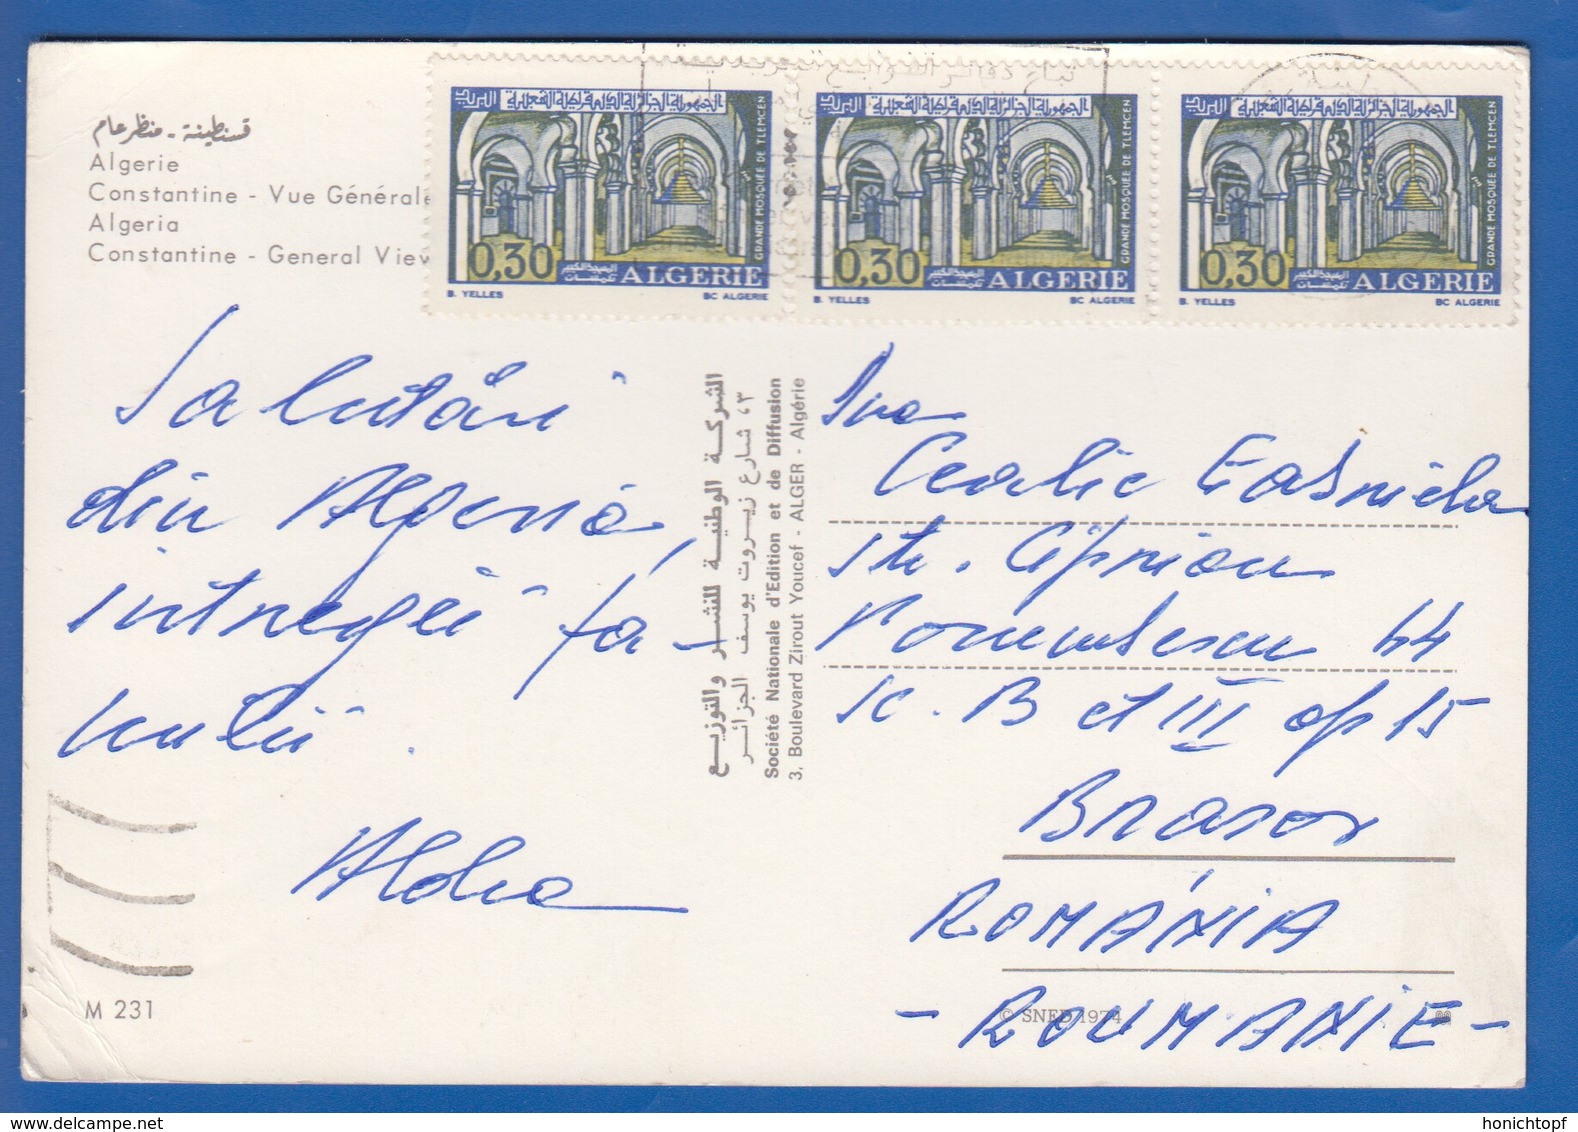 قسنطينة - منظر عام
Algerie
Constantine - Vue Générale
Algeria
Constantine - General View
الجمهورية الجزائرية الديمقراطية الشعبية البريد
GRANDE MOSQUÉE DE TLEMCEN
0,30 المسجد الكبير تلمسان ALGERIE
B. YELLES BC ALGERIE
الجمهورية الجزائرية الديمقراطية الشعبية البريد
GRANDE MOSQUÉE DE TLEMCEN
0,30 المسجد الكبير تلمسان ALGERIE
B. YELLES BC ALGERIE
الجمهورية الجزائرية الديمقراطية الشعبية البريد
GRANDE MOSQUÉE DE TLEMCEN
0,30 المسجد الكبير تلمسان ALGERIE
B. YELLES BC ALGERIE
Salutări
din Algeria,
întregii fa-
milii.
M 231
الشركة الوطنية للنشر والتوزيع
٣، شارع زيروت يوسف الجزائر
Société Nationale d'Edition et de Diffusion
3, Boulevard Zirout Youcef - ALGER - Algérie
str. Ciprian
Porumbescu 44
sc. B et III ap 15
Brasov
ROMÁNIA
- ROUMANIE -
© SNED 1974
honichtopf